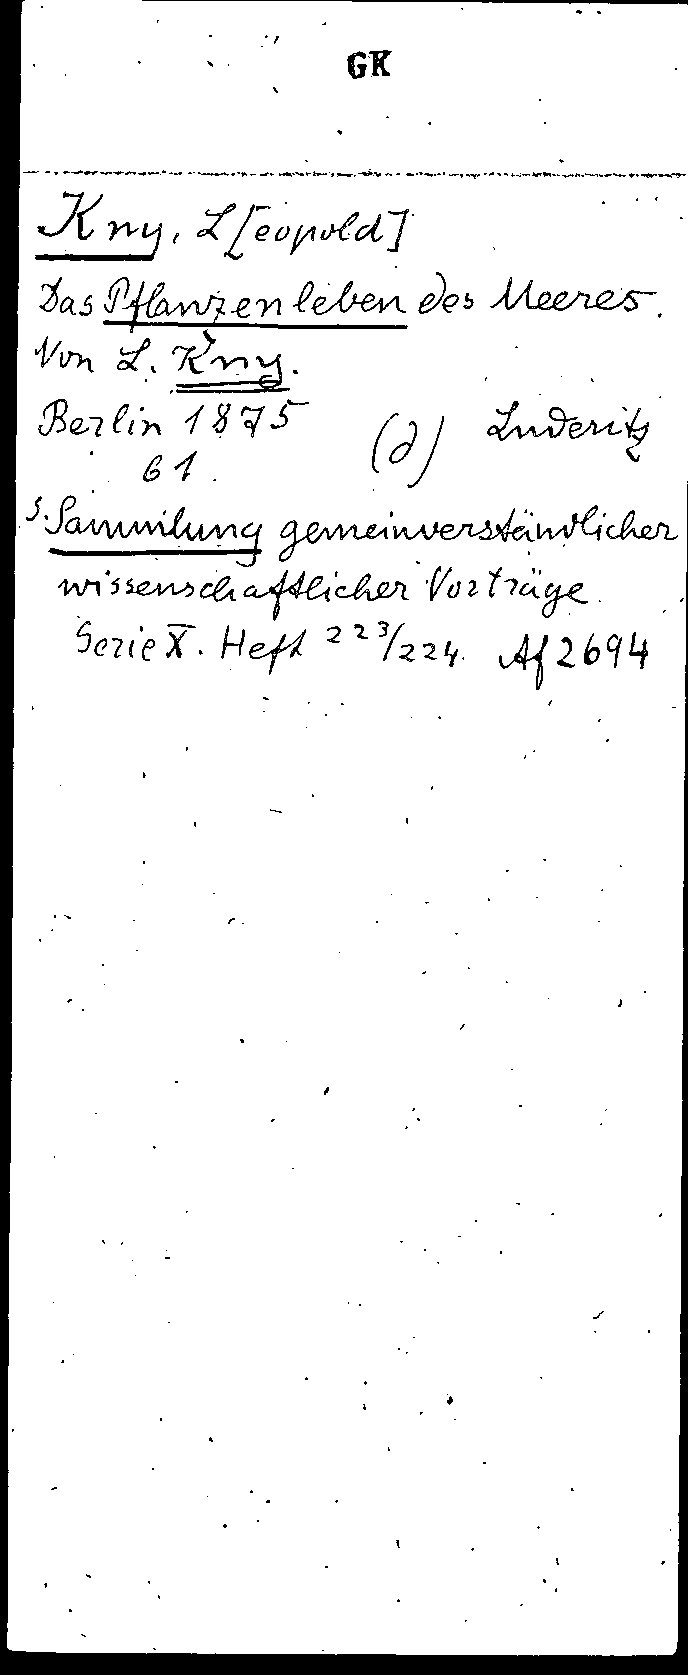 GK
Kny, L[eopold]
Das Pflanzenleben des Meeres.
Von L. Kny.
Berlin 1875 (d) Luderitz
61
s. Sammlung gemeinverständlicher
wissenschaftlicher Vorträge
Serie X. Heft 223/224. Af 2694